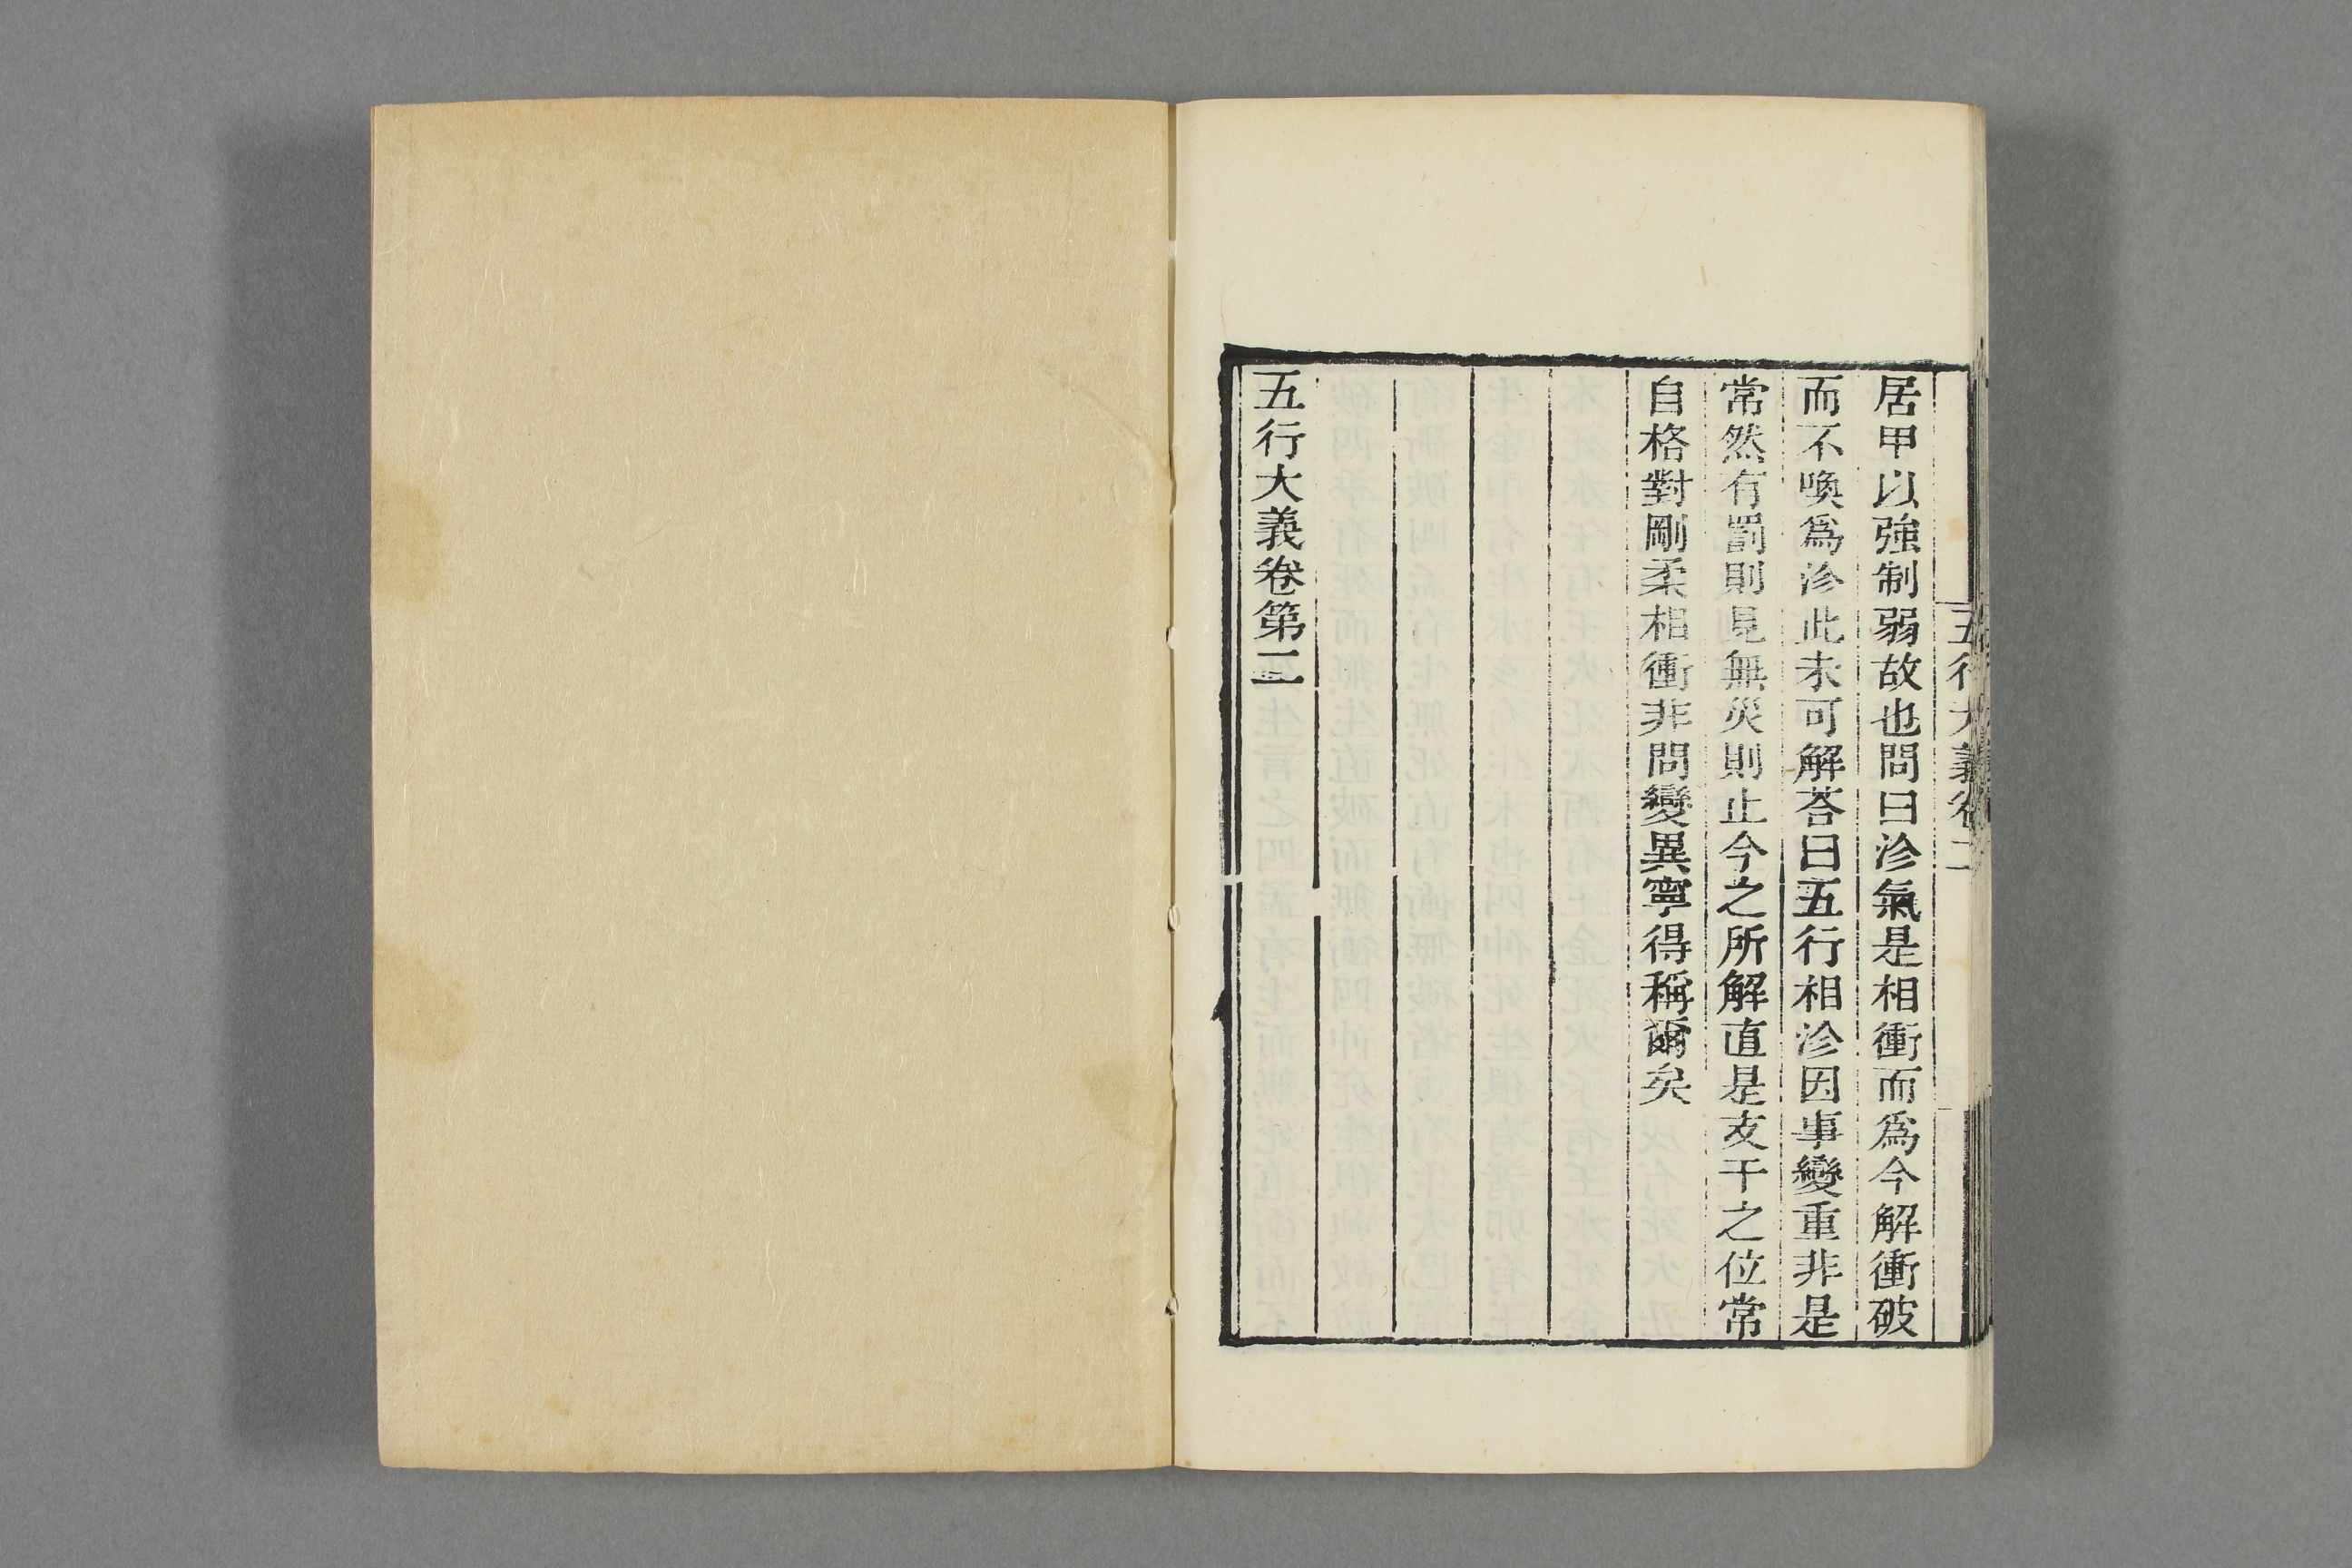 五行大義卷二
居甲以強制弱故也問曰沴氣是相衝而爲今解衝破
而不喚爲沴此未可解荅曰五行相沴因事變重非是
常然有罰則見無災則止今之所解直是支干之位常
自格對剛柔相衝非問變異寧得稱爾矣
五行大義卷第二